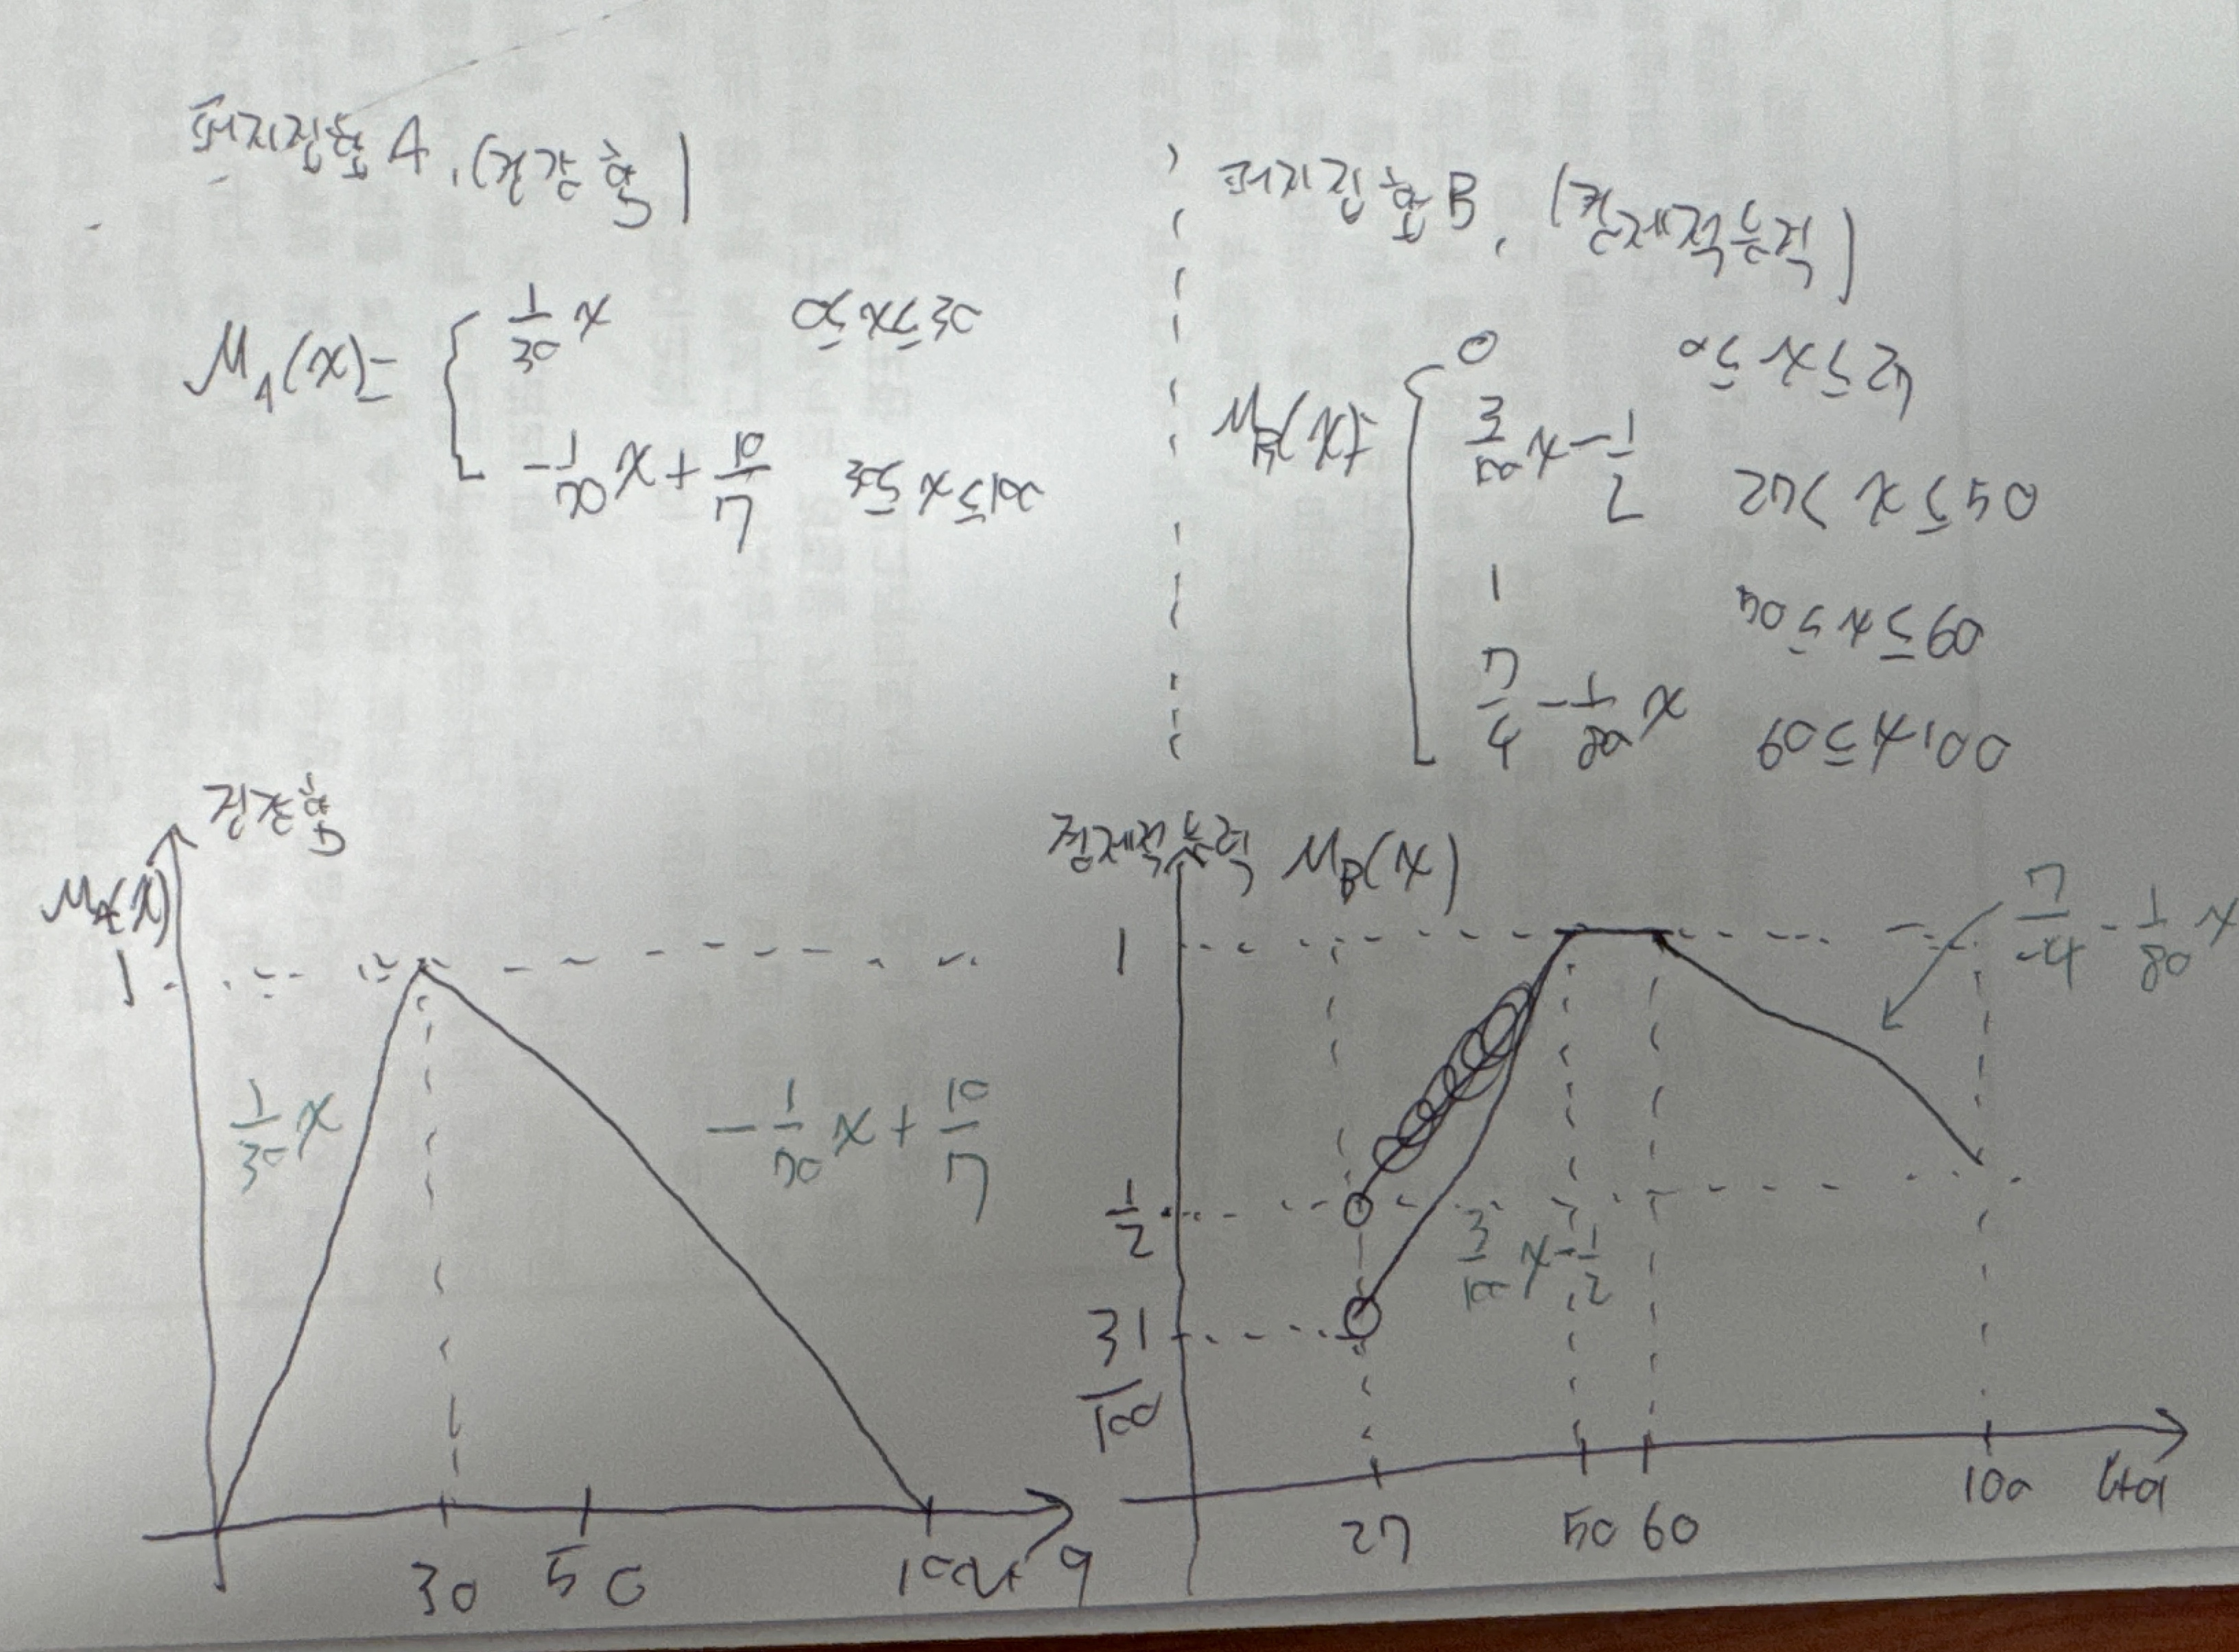 퍼지집합 A, (건강함)
μA(x)= { 1/30 x  0≤x≤30
-1/70 x + 10/7  30≤x≤100
퍼지집합 B, (경제적능력)
μB(x)= { 0  0≤x≤27
3/100 x - 1/2  27< x ≤50
1  50≤x≤60
7/4 - 1/80 x  60≤x 100
건강함
μA(x)
1
1/30 x
-1/70 x + 10/7
30 50 100 나이
경제적능력 μB(x)
1
7/4 - 1/80 x
1/2
3/100 x - 1/2
31/100
27 50 60 100 나이